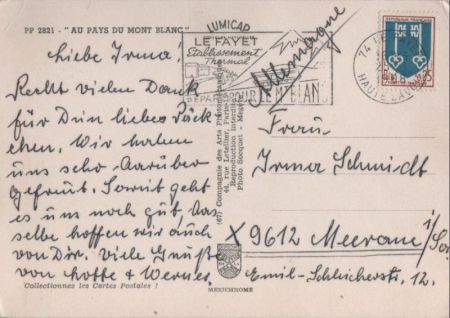 PP 2821 - "AU PAYS DU MONT BLANC"
Liebe Irma!
Recht vielen Dank
für Dein liebes Päck
chen. Wir haben
uns sehr darüber
gefreut. Soweit geht
es uns noch gut, das
selbe hoffen wir auch
von Dir. Viele Grüße
von Lotte & Werner.
Collectionnez les Cartes Postales !
LE FAYET
Etablissement
Thermal
Allemagne
74
HAUTE-SAVOIE
(67) Compagnie des Arts Photomécaniques
44, rue Letellier, Paris
Reproduction interdite
Photo Socquet - Megève
MEXICHROME
Frau
Irma Schmidt
X 9612 Meerane i/Sa.
Emil-Schleicherstr. 12.